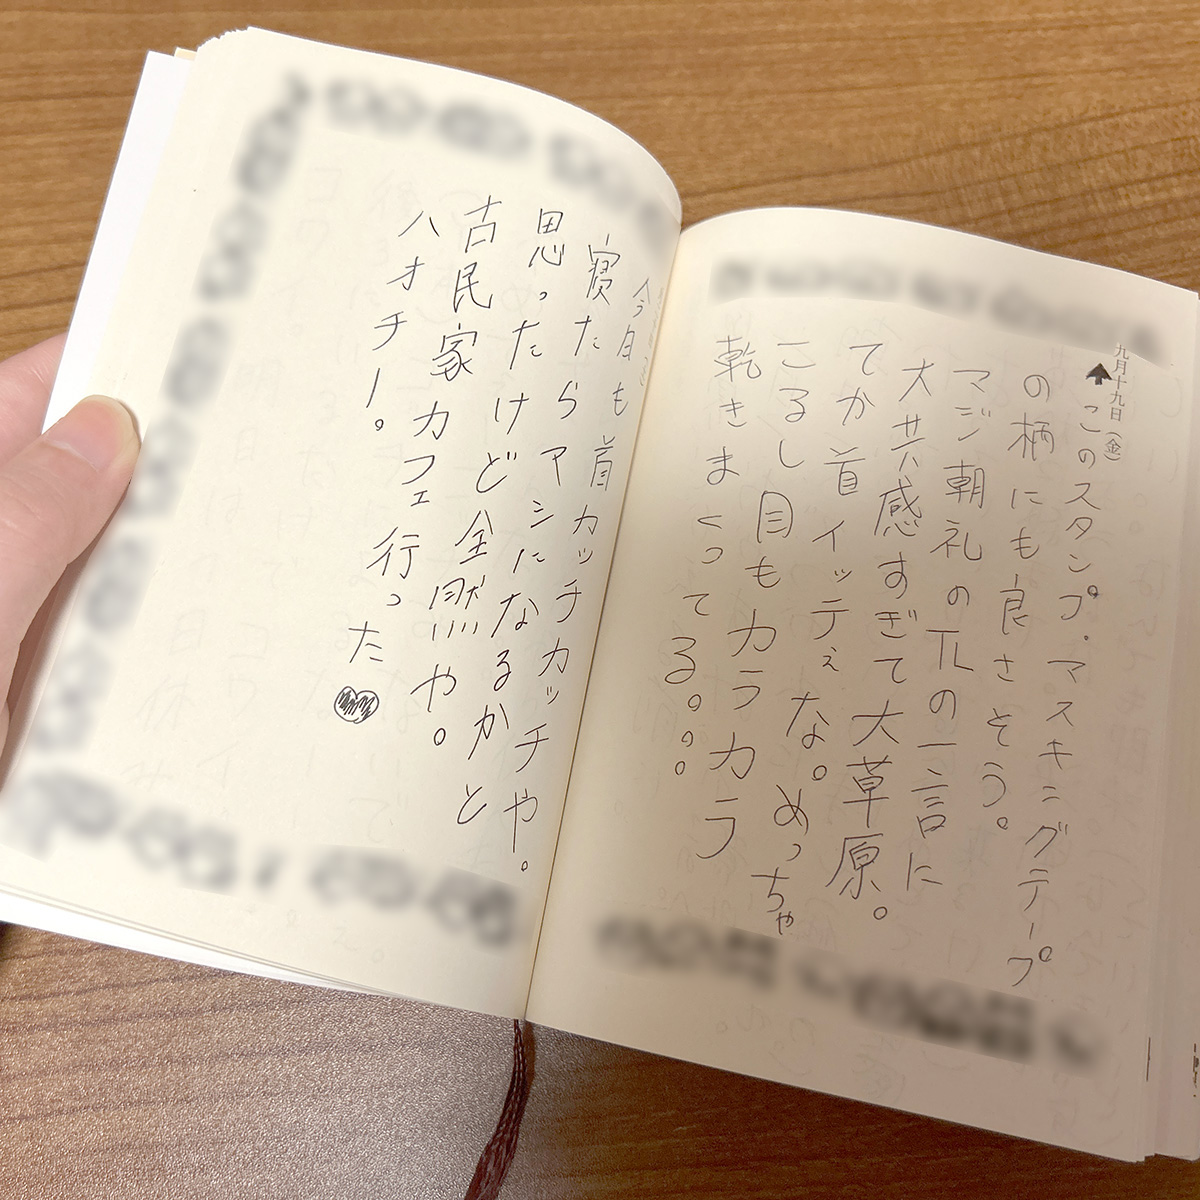 九月十九日(金)
↑このスタンプ、マスキングテープ
の柄にも良さそう。
マジ朝礼のTLの一言に
大共感すぎて大草原。
てか首イッテぇな。めっちゃ
こるし目もカラカラ
乾きまくってる。。。
今日も首カッチカッチや。
寝たらマシになるかと
思ったけど全然や。
古民家カフェ行った♥
ハオチー。